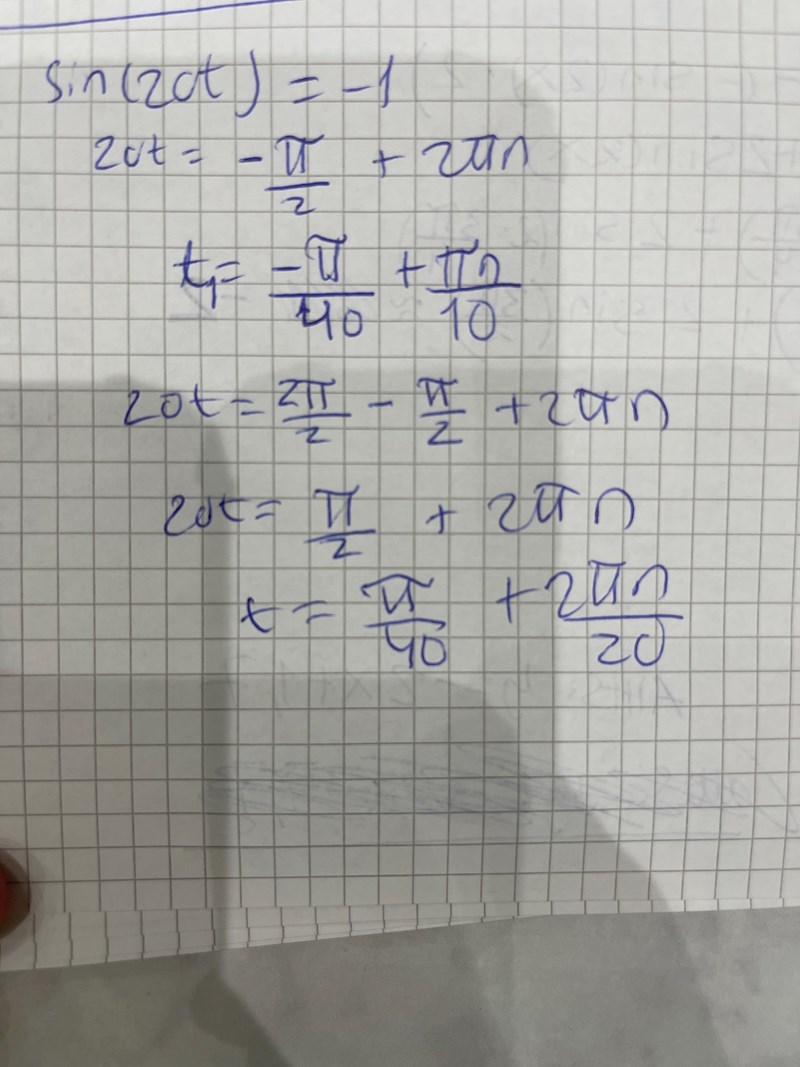 sin(20t) = -1
20t = -π/2 + 2πn
t₁ = -π/40 + πn/10
20t = 2π/2 - π/2 + 2πn
20t = π/2 + 2πn
t = π/40 + 2πn/20